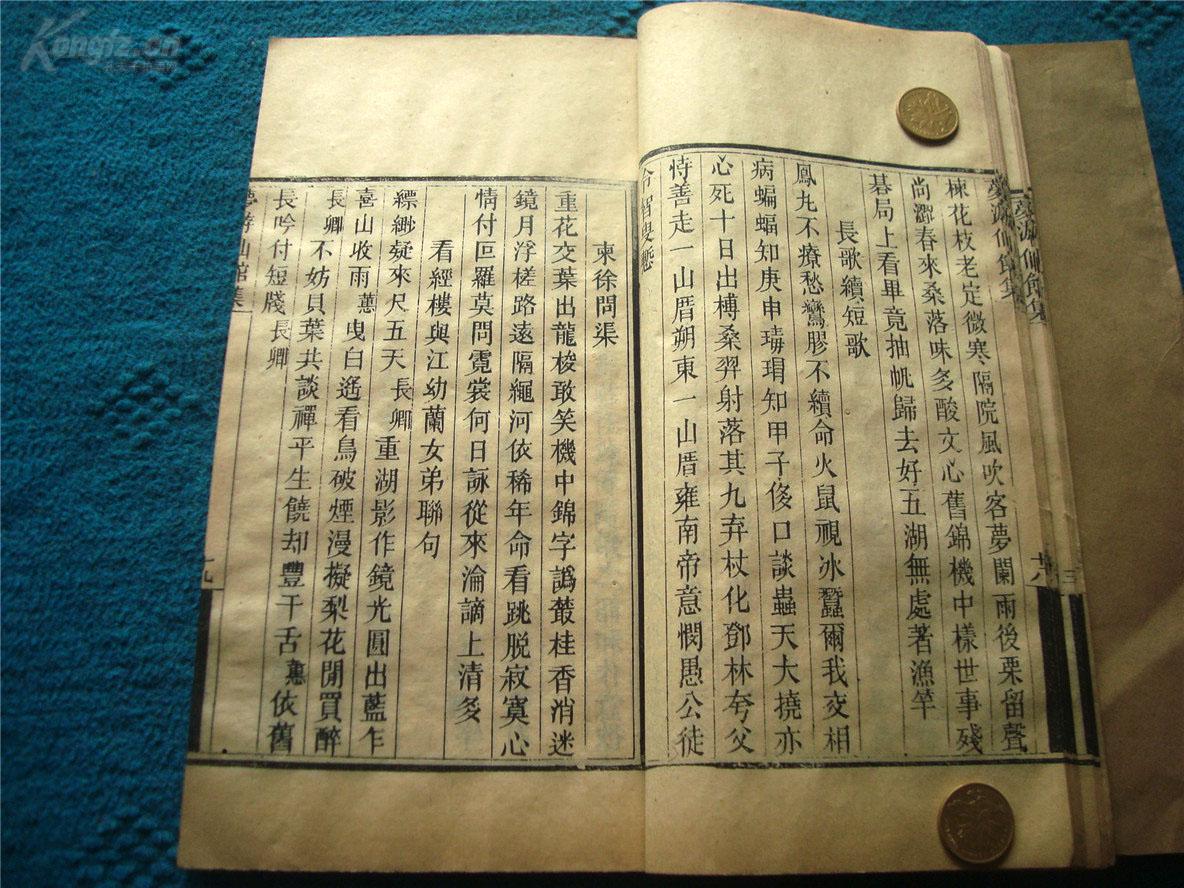 Kongfz.cn
夢游仙館集
楝花枝老定微寒隔院風吹客夢闌雨後栗留聲
尚澀春來桑落味多酸文心舊錦機中樣世事殘
碁局上看畢竟抽帆歸去好五湖無處著漁竿
長歌續短歌
鳳丸不療愁鸞膠不續命火鼠視冰蠶爾我交相
病蝙蝠知庚申瑇瑁知甲子倰口談蟲天大撓亦
心死十日出榑桑羿射落其九弃杖化鄧林夸父
恃善走一山厝朔東一山厝雍南帝意憫愚公徒
令智叟慙
柬徐問渠
重花交葉出龍梭敢笑機中錦字譌叢桂香消迷
鏡月浮槎路遠隔繩河依稀年命看跳脱寂寞心
情付叵羅莫問霓裳何日詠從來淪謫上清多
看經樓與江幼蘭女弟聯句
縹緲疑來尺五天長卿重湖影作鏡光圓出藍乍
喜山收雨蕙曳白遙看鳥破煙漫擬梨花閒買醉
長卿不妨貝葉共談禪平生饒却豐干舌蕙依舊
長吟付短牋長卿
夢游仙館集